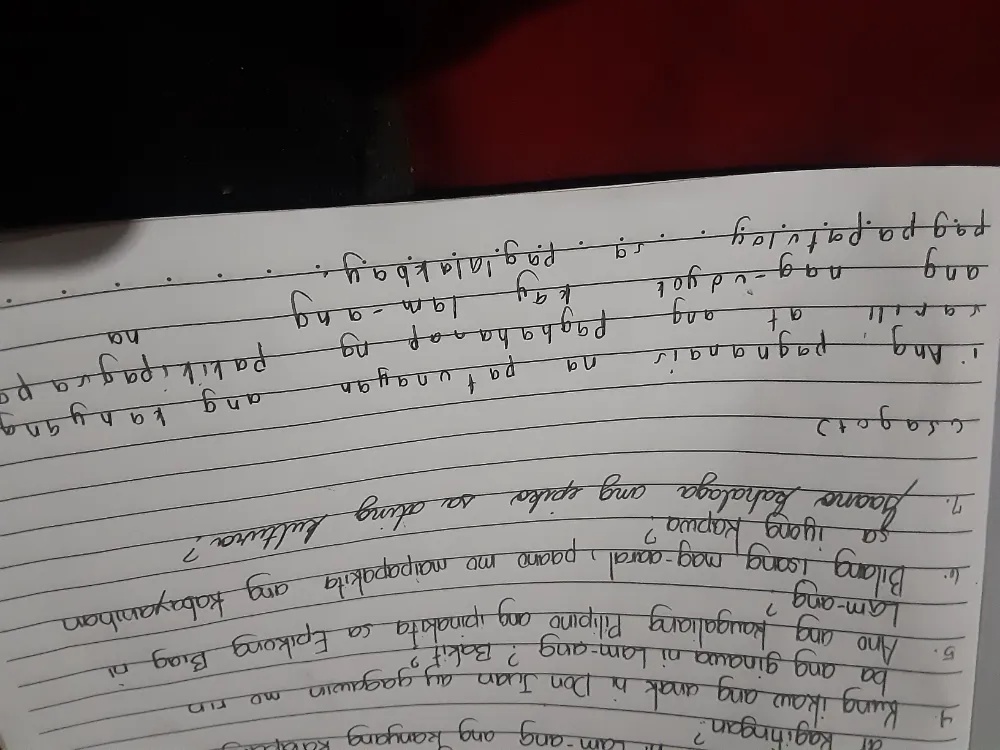 ni Lam-ang ang kanyang
kagitingan?
4. Kung ikaw ang anak ni Don Juan ay gagawin mo rin
ba ang ginawa ni Lam-ang? Bakit?
5. Ano ang kaugaliang Pilipino ang ipinakita sa Epikong Biag ni
Lam-ang?
6. Bilang isang mag-aaral, paano mo maipapakita ang kabayanihan
sa iyong kapwa?
7. Gaano kahalaga ang epiko sa ating kultura?
(sagot)
1. Ang pagnanais na patunayan ang kanyang
sarili at ang paghahanap ng pakikipagsapa
ang nag-udyok kay lam-ang na
pagpapatuloy sa paglalakbay.